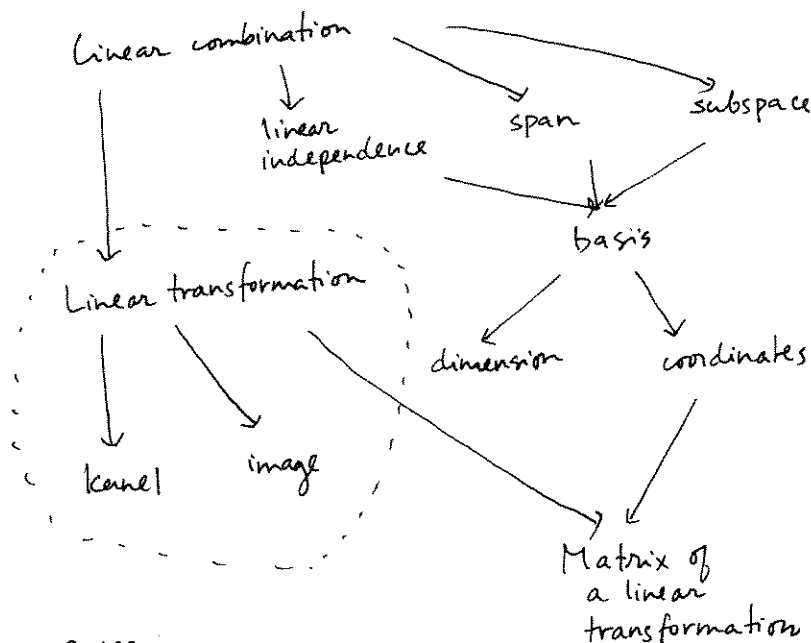 Linear combination
linear
independence
span
subspace
basis
Linear transformation
dimension
coordinates
kernel
image
Matrix of
a linear
transformation